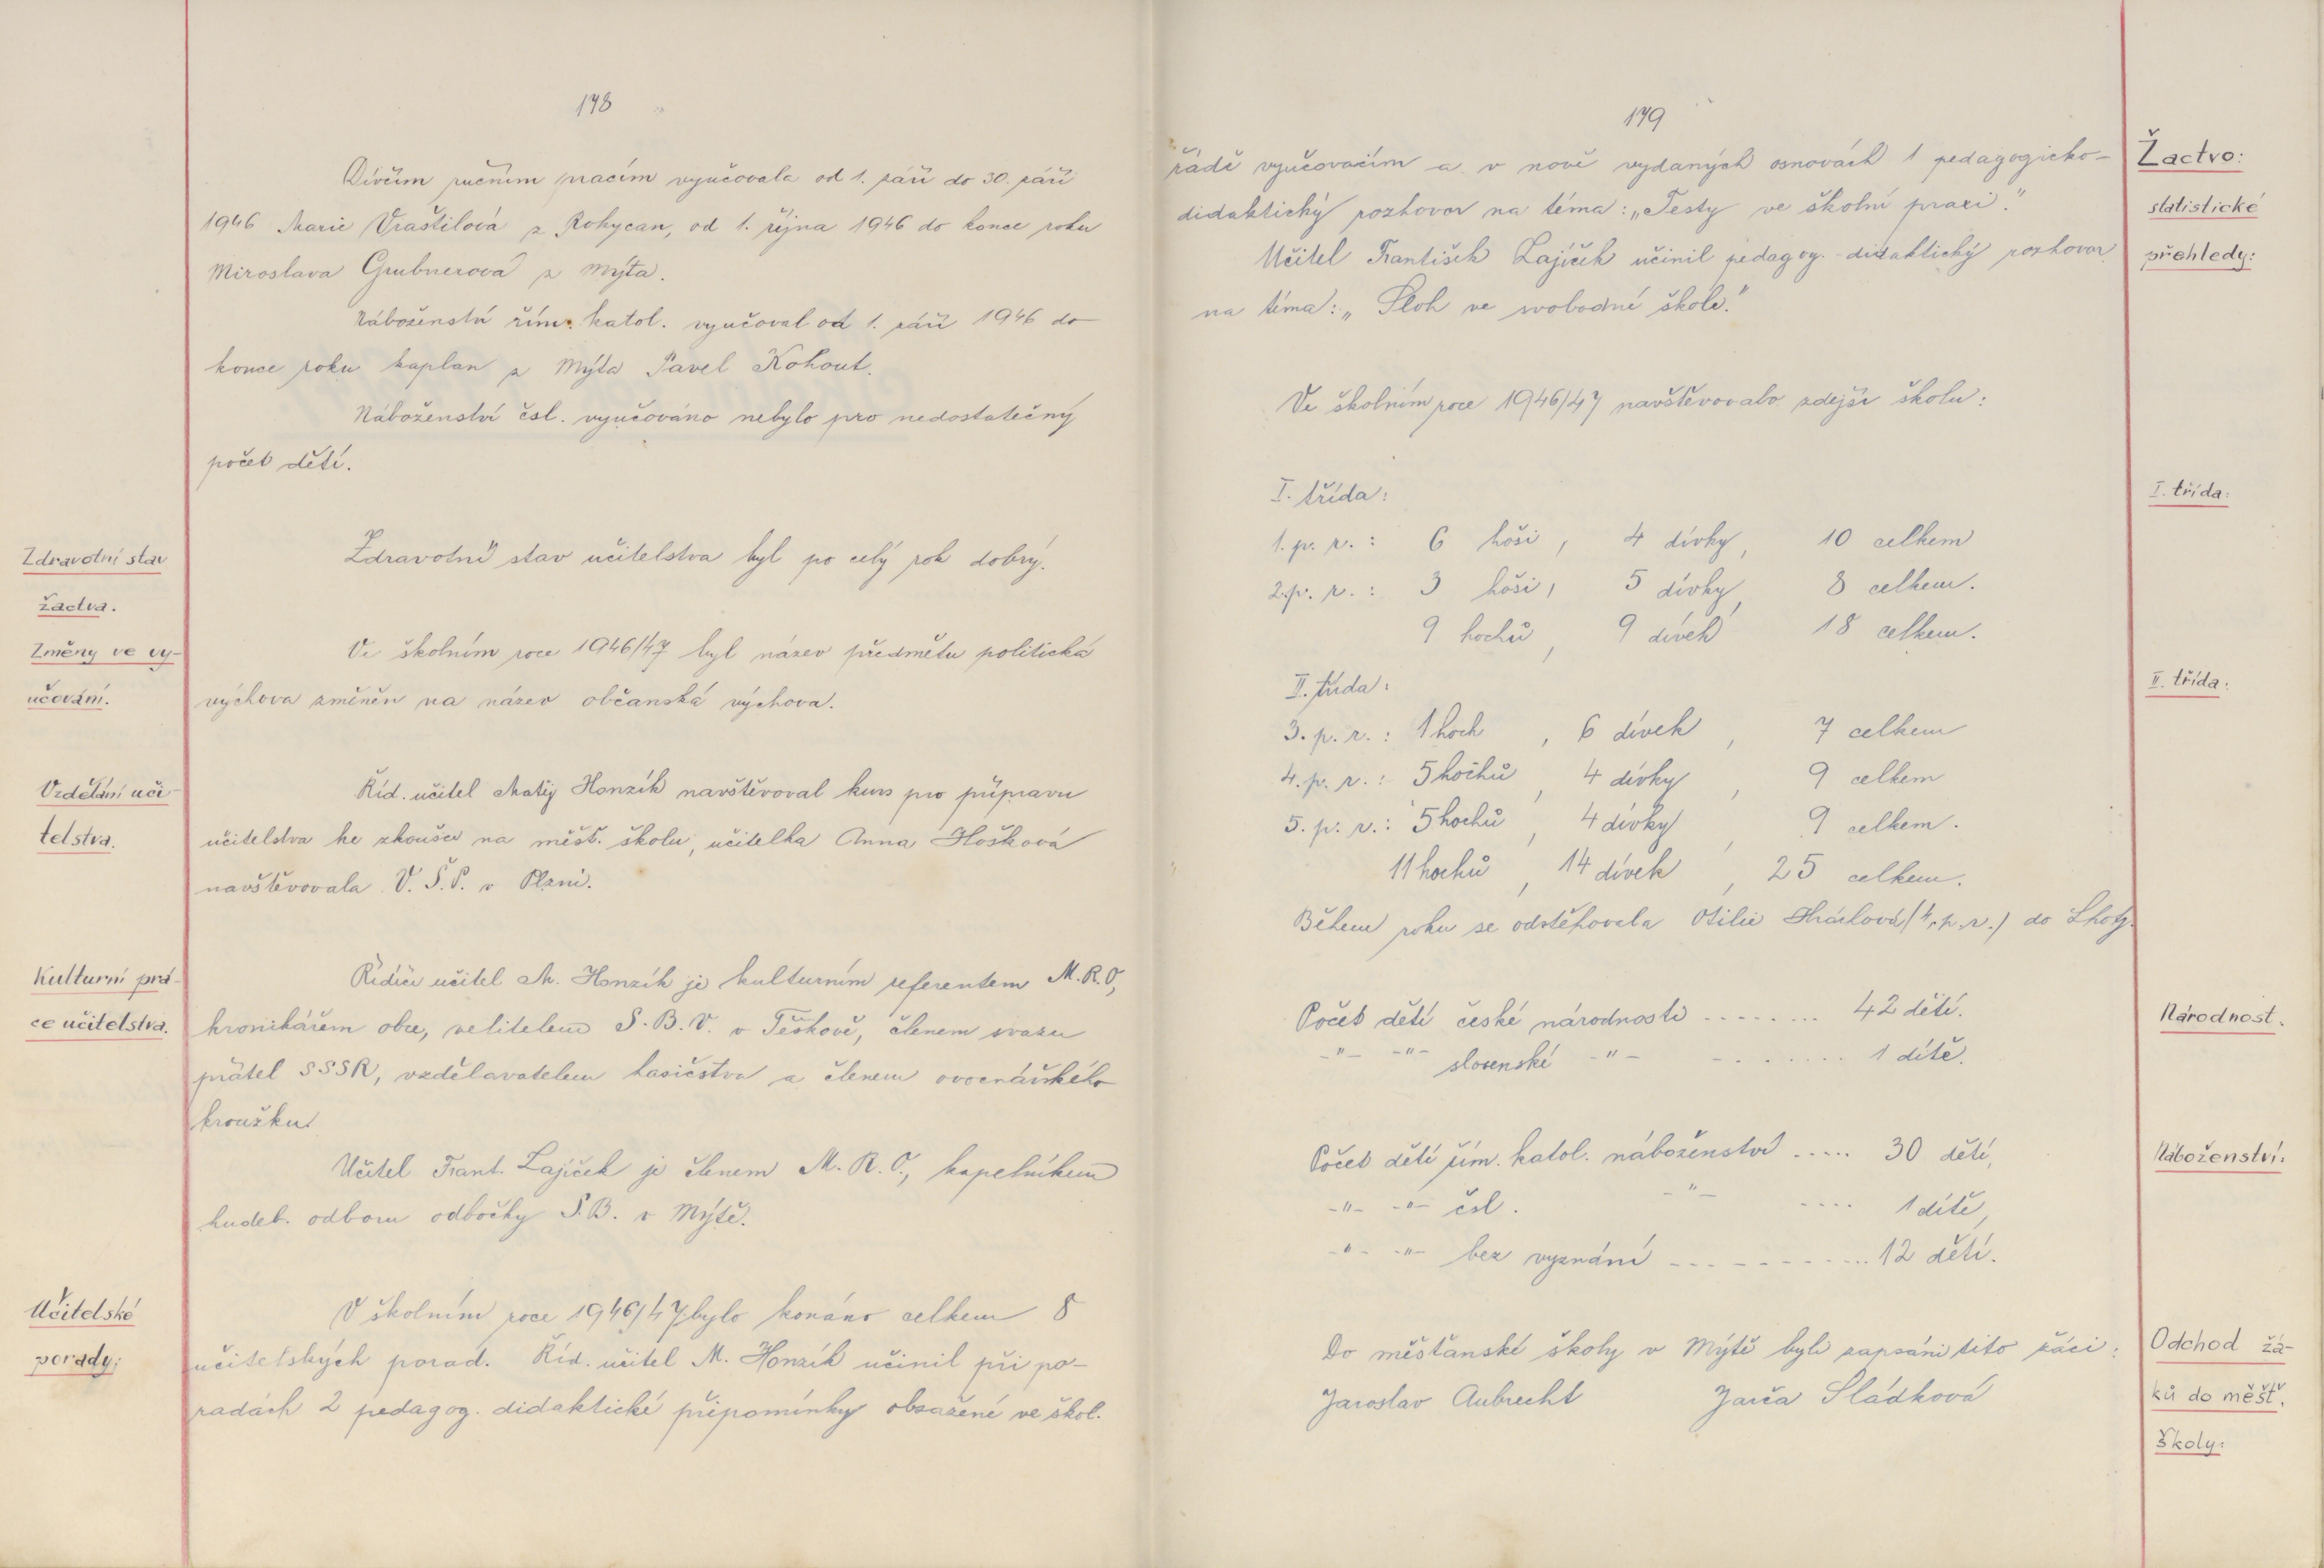 178
Dívčím ručním pracím vyučovala od 1. září do 30. září
1946 Marie Vraštilová z Rokycan, od 1. října 1946 do konce roku
Miroslava Grubnerová z Mýta.
Náboženství řím. katol. vyučoval od 1. září 1946 do
konce roku kaplan z Mýta Pavel Kohout.
Náboženství čsl. vyučováno nebylo pro nedostatečný
počet dětí.
Zdravotní stav
žactva.
Zdravotní stav učitelstva byl po celý rok dobrý.
Změny ve vy-
učování.
Ve školním roce 1946/47 byl název předmětu politická
výchova změněn na název občanská výchova.
Vzdělání uči-
telstva.
Říd. učitel Matěj Honzík navštěvoval kurs pro přípravu
učitelstva ke zkoušce na měšť. školu, učitelka Anna Hošková
navštěvovala V. Š. P. v Plzni.
Kulturní prá-
ce učitelstva.
Řídící učitel M. Honzík je kulturním referentem M.R.O,
kronikářem obce, velitelem S. B. V. v Těškově, členem svazu
přátel SSSR, vzdělavatelem hasičstva a členem ovocnářského
kroužku.
Učitel Frant. Lajíček je členem M. R. O., kapelníkem
hudeb. odboru odbočky S.B. v Mýtě.
Učitelské
porady:
V školním roce 1946/47 bylo konáno celkem 8
učitelských porad. Říd. učitel M. Honzík učinil při po-
radách 2 pedagog. didaktické připomínky obsažené ve škol.
179
řádě vyučovacím a v nově vydaných osnovách 1 pedagogicko-
didaktický rozhovor na téma: „Testy ve školní praxi."
Učitel František Lajíček učinil pedagog.-didaktický rozhovor
na téma: „Sloh ve svobodné škole."
Žactvo:
statistické
přehledy:
Ve školním roce 1946/47 navštěvovalo zdejší školu:
I. třída:
I. třída:
1. p. r. : 6 hoši, 4 dívky, 10 celkem
2. p. r. : 3 hoši, 5 dívky, 8 celkem.
9 hochů, 9 dívek 18 celkem.
II. třída:
II. třída:
3. p. r. : 1 hoch , 6 dívek , 7 celkem
4. p. r. : 5 hochů , 4 dívky , 9 celkem
5. p. r. : 5 hochů , 4 dívky , 9 celkem.
11 hochů , 14 dívek , 25 celkem.
Během roku se odstěhovala Otilie (4. p. r.) do Lhoty.
Národnost.
Počet dětí české národnosti ........ 42 dětí.
-"- -"- slovenské -"- ........ 1 dítě.
Náboženství.
Počet dětí řím. katol. náboženství ..... 30 dětí,
-"- -"- čsl. -"- .... 1 dítě,
-"- -"- bez vyznání ........... 12 dětí.
Odchod žá-
ků do měšť.
školy:
Do měšťanské školy v Mýtě byli zapsáni tito žáci:
Jaroslav Aubrecht Jarča Sládková